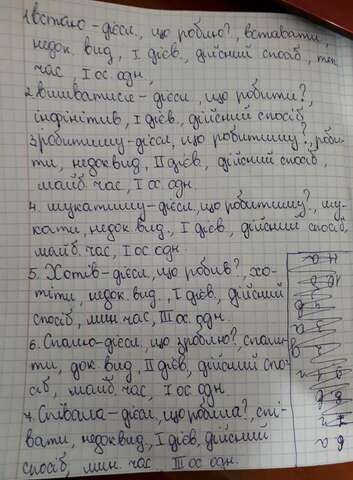 1. встаю - дієсл, що роблю?, вставати,
недок. вид, I дієв., дійсний спосіб, теп.
час, I ос. одн,
2. вишиватися - дієсл, що робити?,
інфінітив, I дієв, дійсний спосіб
3. робитиму - дієсл, що робитиму?, роби-
ти, недок вид, II дієв, дійсний спосіб,
майб. час, I ос. одн.
4. шукатиму - дієсл, що робитиму?, шу-
кати, недок вид., I дієв, дійсний спосіб,
майб. час, I ос. одн
5. Хотів - дієсл, що робив?, хо-
тіти, недок. вид., I дієв, дійсний
спосіб, мин. час, III ос. одн.
6. Спалю - дієсл, що зроблю?, спали-
ти, док. вид, II дієв, дійсний спо-
сіб, майб. час, I ос. одн.
7. Співала - дієсл, що робила?, спі-
вати, недок вид, I дієв, дійсний
спосіб, мин. час, III ос. одн.